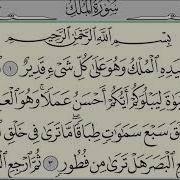 سُورَةُ المُلْكِ
بِسْمِ اللَّهِ الرَّحْمَٰنِ الرَّحِيمِ
يَدِهِ الْمُلْكُ وَهُوَ عَلَىٰ كُلِّ شَيْءٍ قَدِيرٌ ١
لِيَبْلُوَكُمْ أَيُّكُمْ أَحْسَنُ عَمَلًا وَهُوَ
خَلَقَ سَبْعَ سَمَٰوَٰتٍ طِبَاقًا مَّا تَرَىٰ فِي خَلْقِ
الْبَصَرَ هَلْ تَرَىٰ مِن فُطُورٍ ٣ ثُمَّ ارْجِعِ